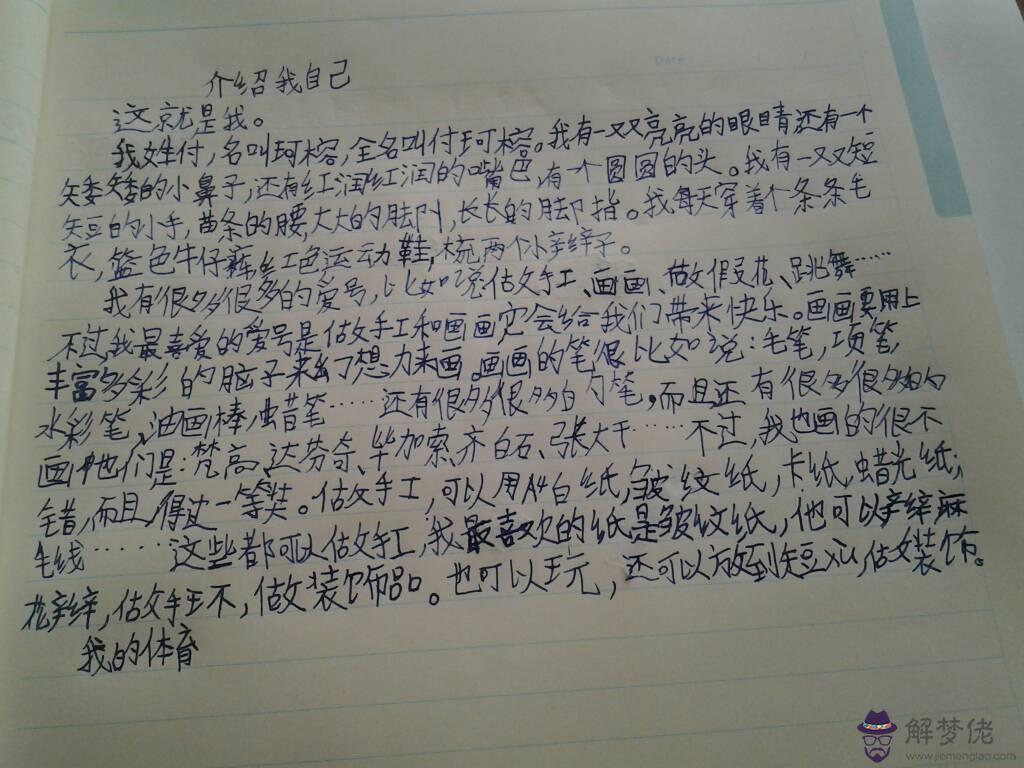 Date
介绍我自己
这就是我。
我姓付,名叫珂榕,全名叫付珂榕。我有一双亮亮的眼睛还有一个
矮矮的小鼻子,还有红润红润的嘴色,有一个圆圆的头。我有一双短
短的小手,曲条的腰,大大的脚,长长的脚指。我每天穿着个条条毛
衣,篮色牛仔裤,红色运动鞋,梳两个小辫子。
我有很多很多的爱号,比如说做手工、画画、做假花、跳舞……
不过,我最喜爱的爱号是做手工和画画它会给我们带来快乐。画画要用上
丰富多彩的脑子来想力来画。画画的笔很比如说:毛笔,项笔,
水彩笔,油画棒,蜡笔……还有很多很多的笔,而且还有很多很多的
画他们是:梵高、达芬奇、毕加索、齐白石、张大千……不过,我也画的很不
错,而且得过一等奖。做手工,可以用A4白纸,皱纹纸,卡纸,蜡光纸;
毛线……这些都可以做手工,我最喜欢的纸是皱纹纸,他可以辫麻
花辫,做手工不,做装饰品。也可以玩,还可以放到,做装饰。
我的体育
解梦佬
www.jiemenglao.com